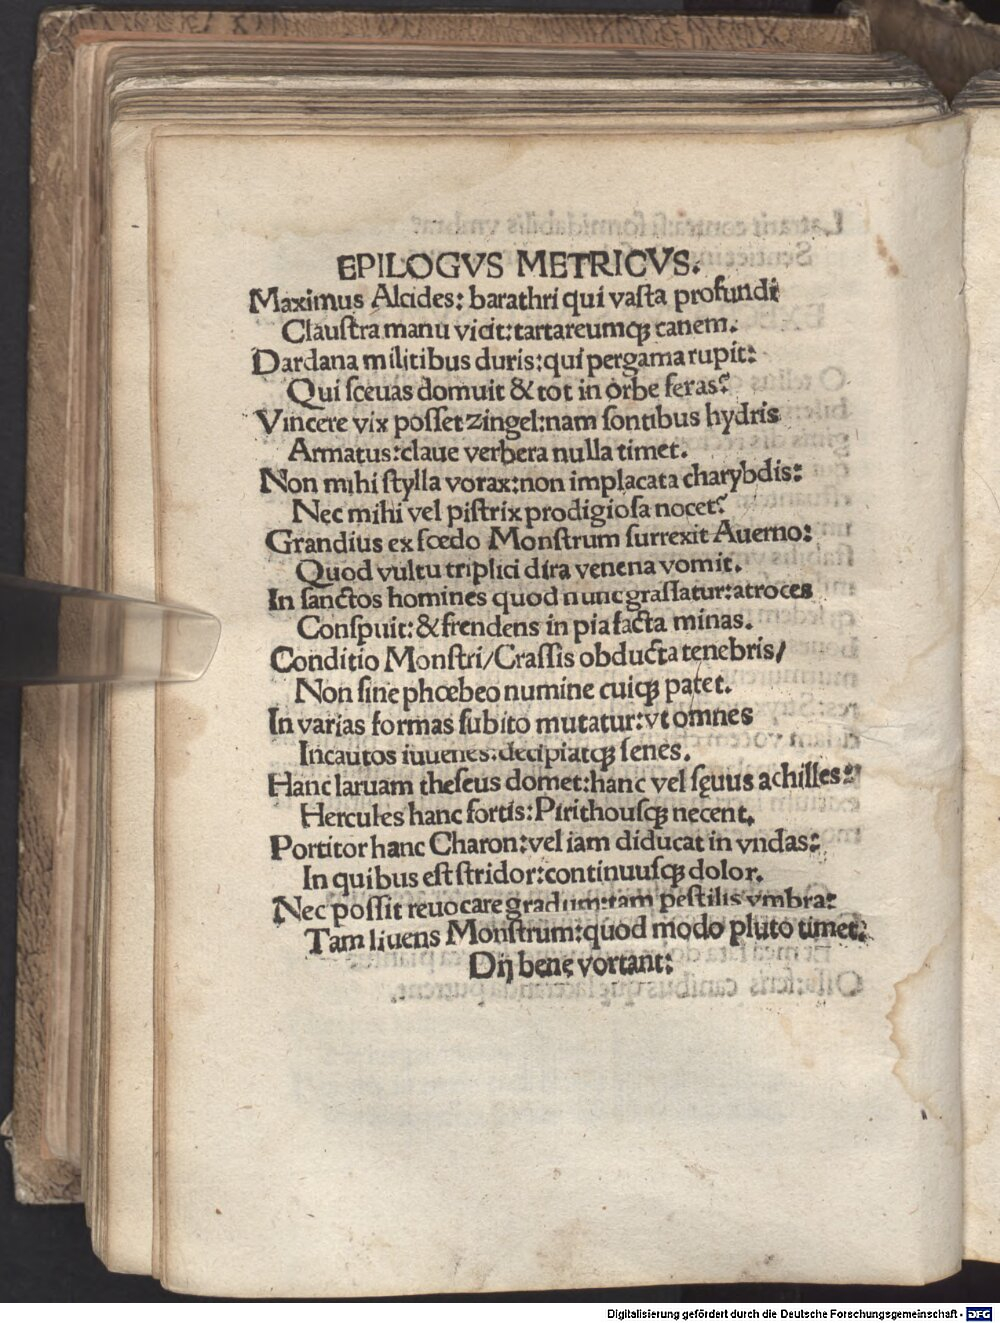 EPILOGVS METRICVS.
Maximus Alcides: barathri qui vasta profundi
Claustra manu vicit: tartareumqꝫ canem.
Dardana militibus duris: qui pergama rupit:
Qui sceuas domuit & tot in orbe feras?
Vincere vix posset zingel: nam sontibus hydris
Armatus: claue verbera nulla timet.
Non mihi stylla vorax: non implacata charybdis:
Nec mihi vel pistrix prodigiosa nocet?
Grandius ex fœdo Monstrum surrexit Auerno:
Quod vultu triplici dira venena vomit.
In sanctos homines quod nunc grassatur: atroces
Conspuit: & frendens in pia facta minas.
Conditio Monstri/Crassis obducta tenebris/
Non sine phœbeo numine cuiqꝫ patet.
In varias formas subito mutatur: vt omnes
Incautos iuuenes: decipiatqꝫ senes.
Hanc laruam theseus domet: hanc vel sęuus achilles:
Hercules hanc fortis: Pirithousqꝫ necent.
Portitor hanc Charon: vel iam diducat in vndas:
In quibus est stridor: continuusqꝫ dolor.
Nec possit reuocare gradum: tam pestilis vmbra:
Tam liuens Monstrum: quod modo pluto timet.
Dij bene vortant:
Digitalisierung gefördert durch die Deutsche Forschungsgemeinschaft - DFG